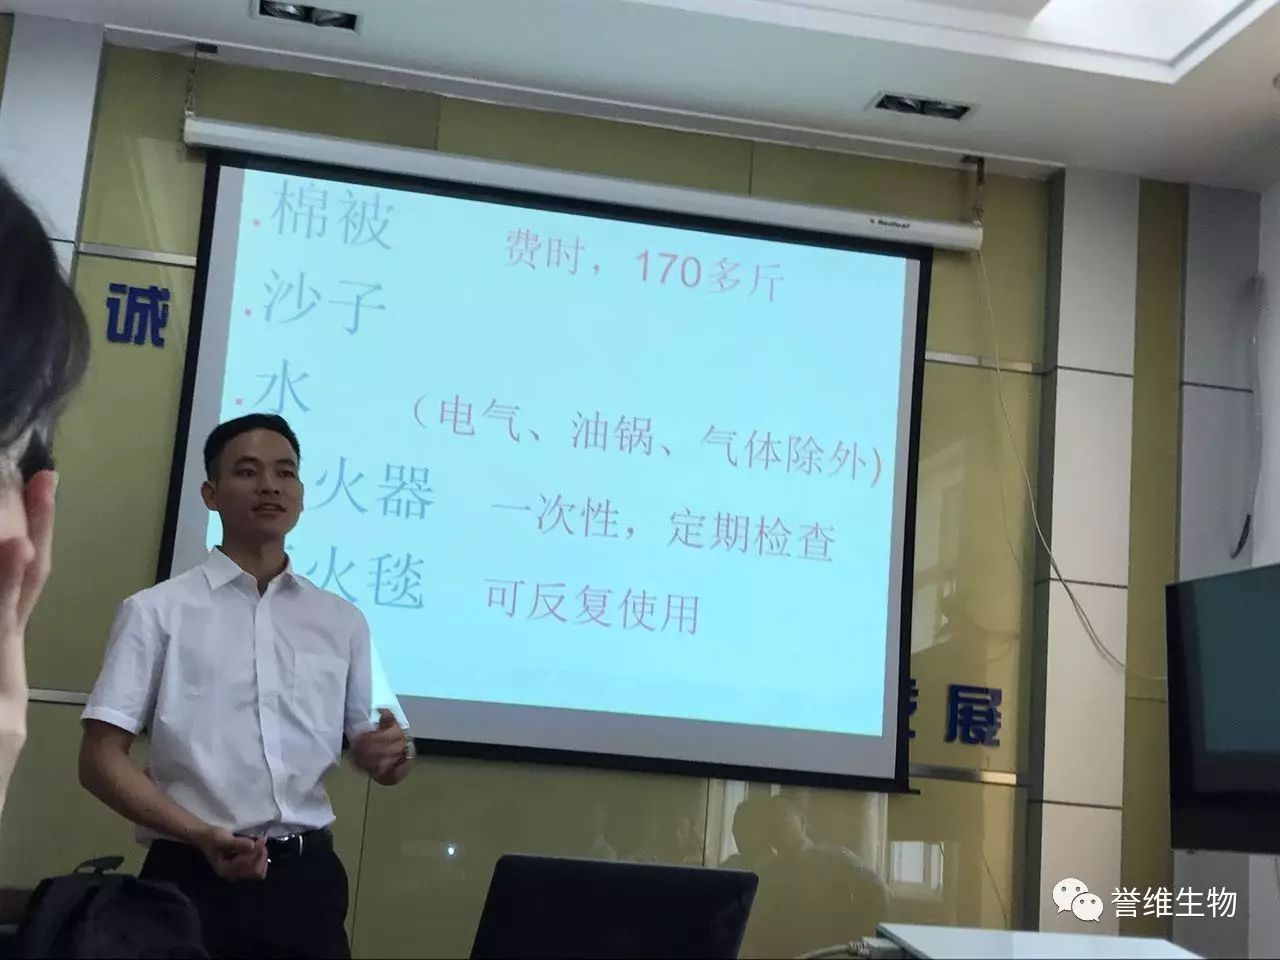 .棉被 费时，170多斤
.沙子
.水 （电气、油锅、气体除外)
火器 一次性，定期检查
火毯 可反复使用
诚
展
誉维生物